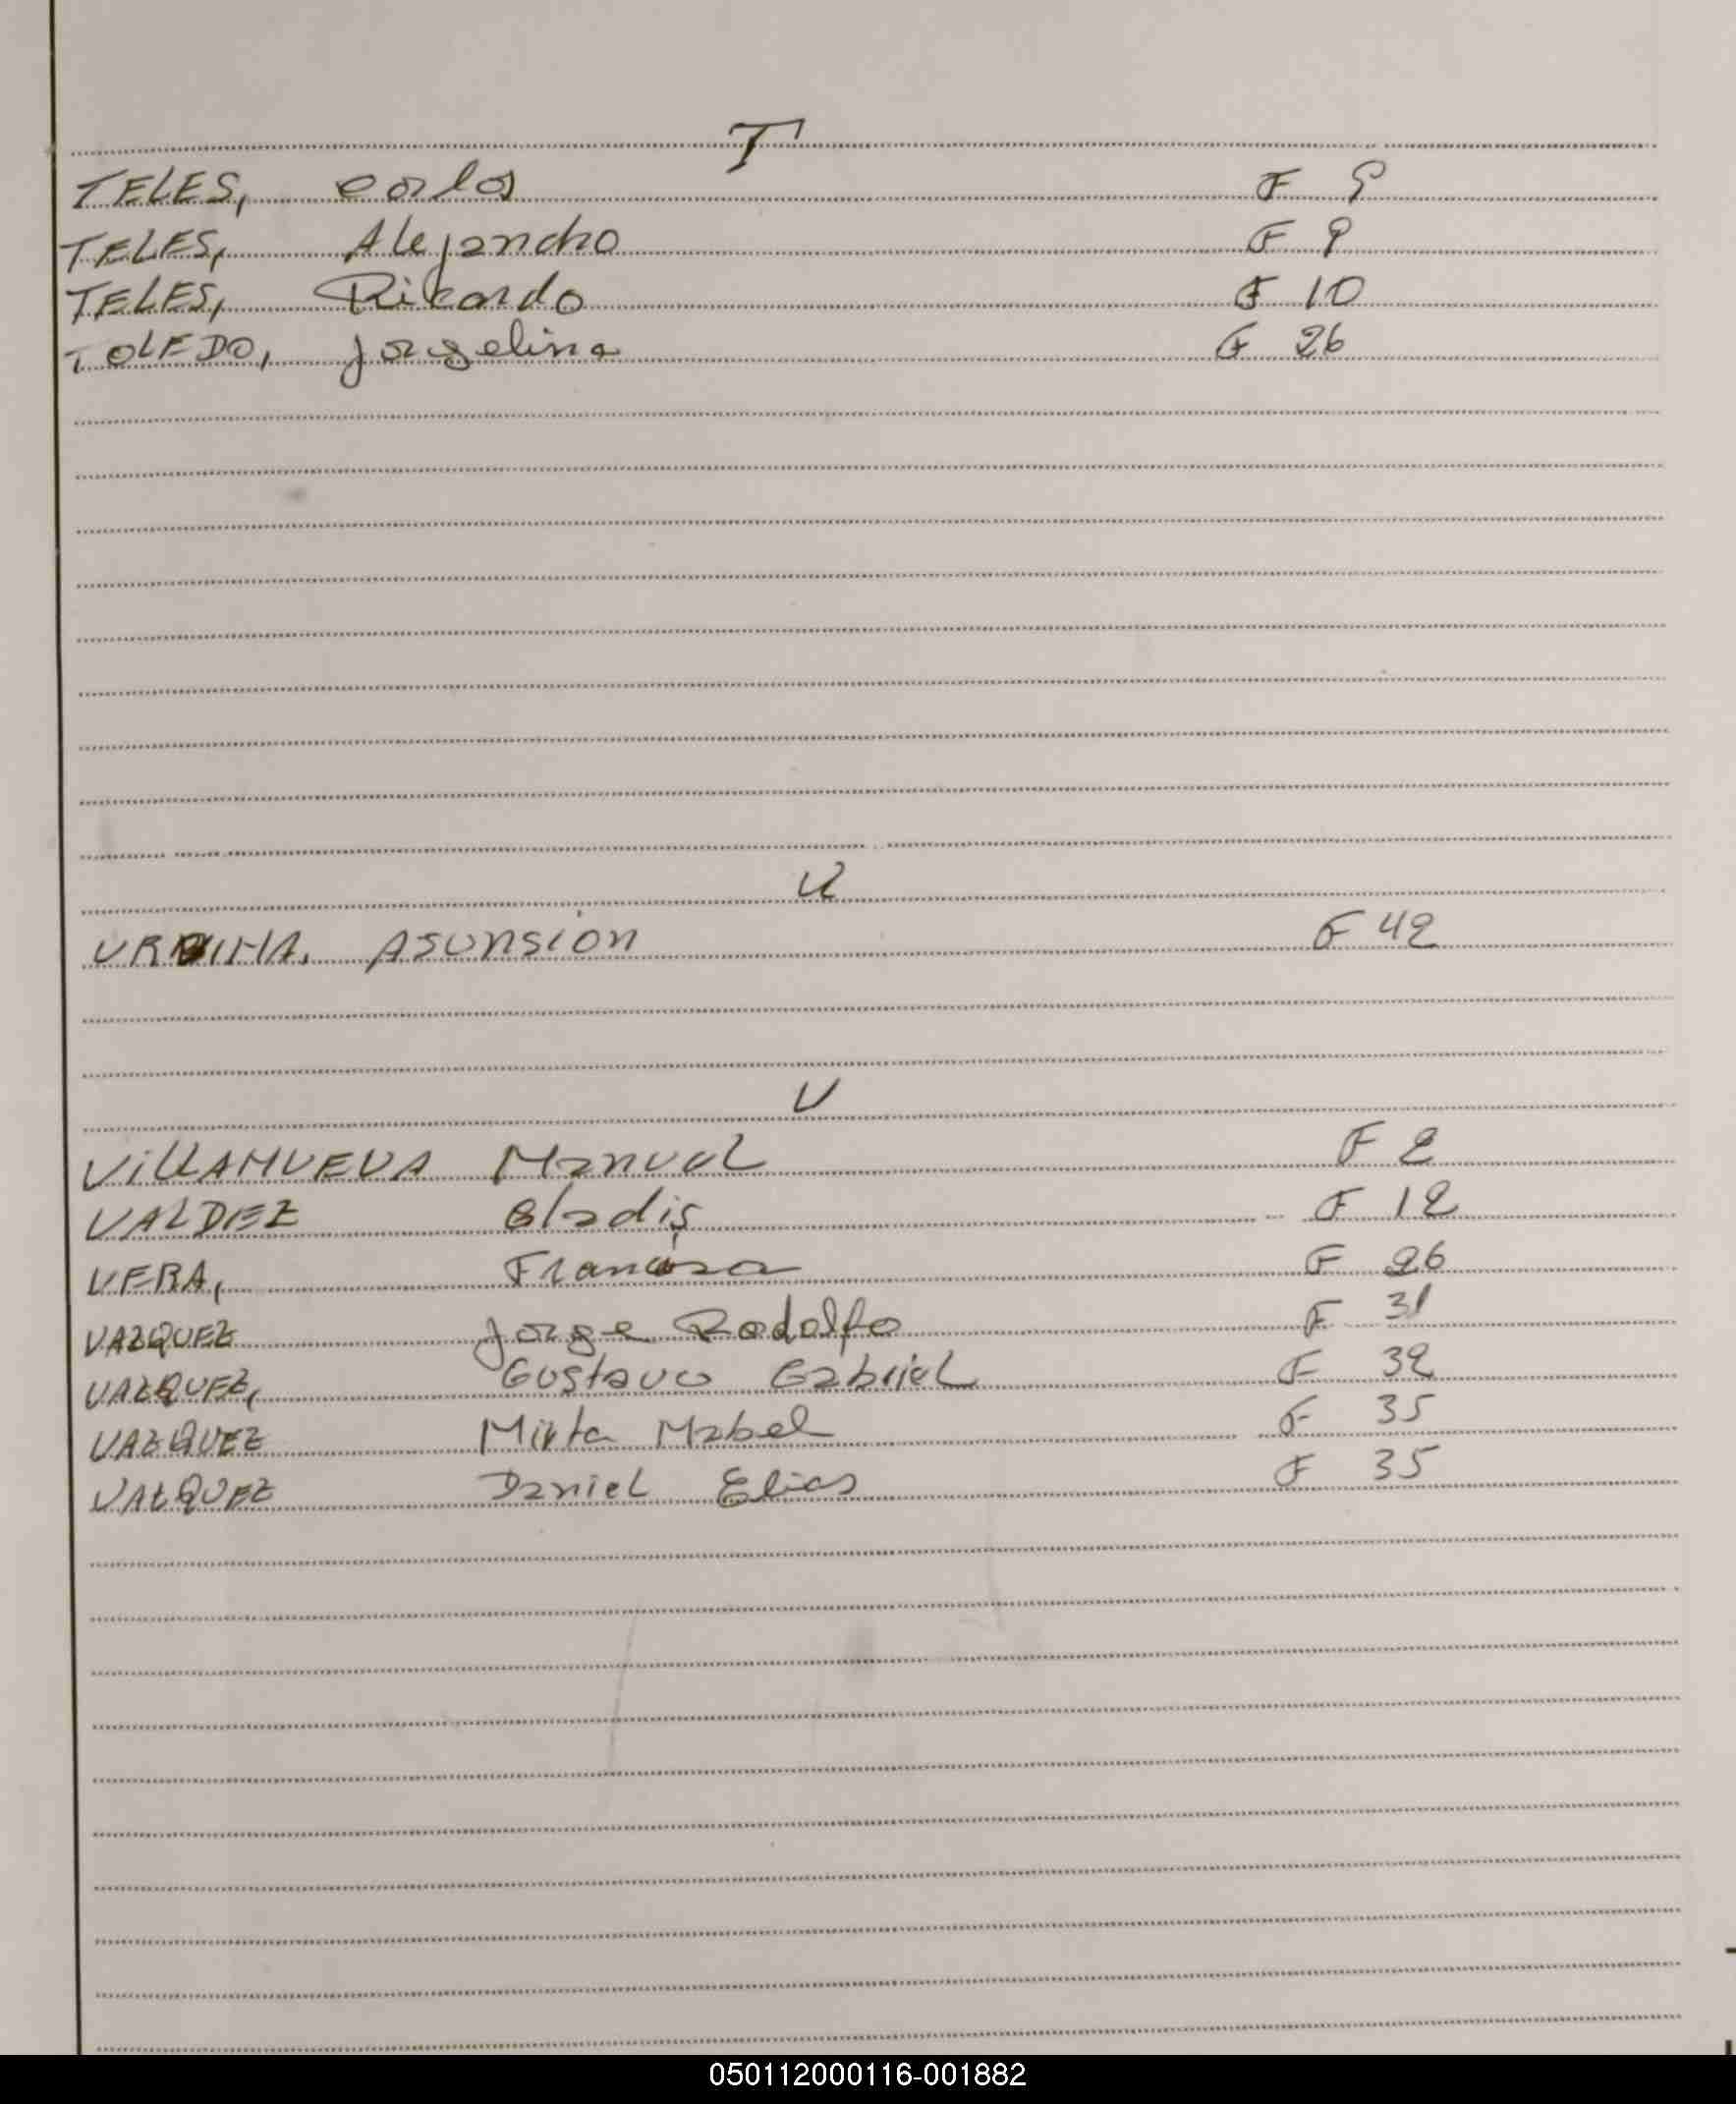 T
TELES, Carlos F 9
TELES, Alejandro F 9
TELES, Ricardo F 10
TOLEDO, Jorgelina F 26
U
Asunsion F 42
V
VILLANUEVA Manuel F 2
VALDEZ Gladis F 12
VERA, Francisca F 26
VAZQUEZ Jorge Rodolfo F 31
VAZQUEZ, Gustavo Gabriel F 32
VAZQUEZ Mirta Mabel F 35
VAZQUEZ Daniel Elias F 35
050112000116-001882